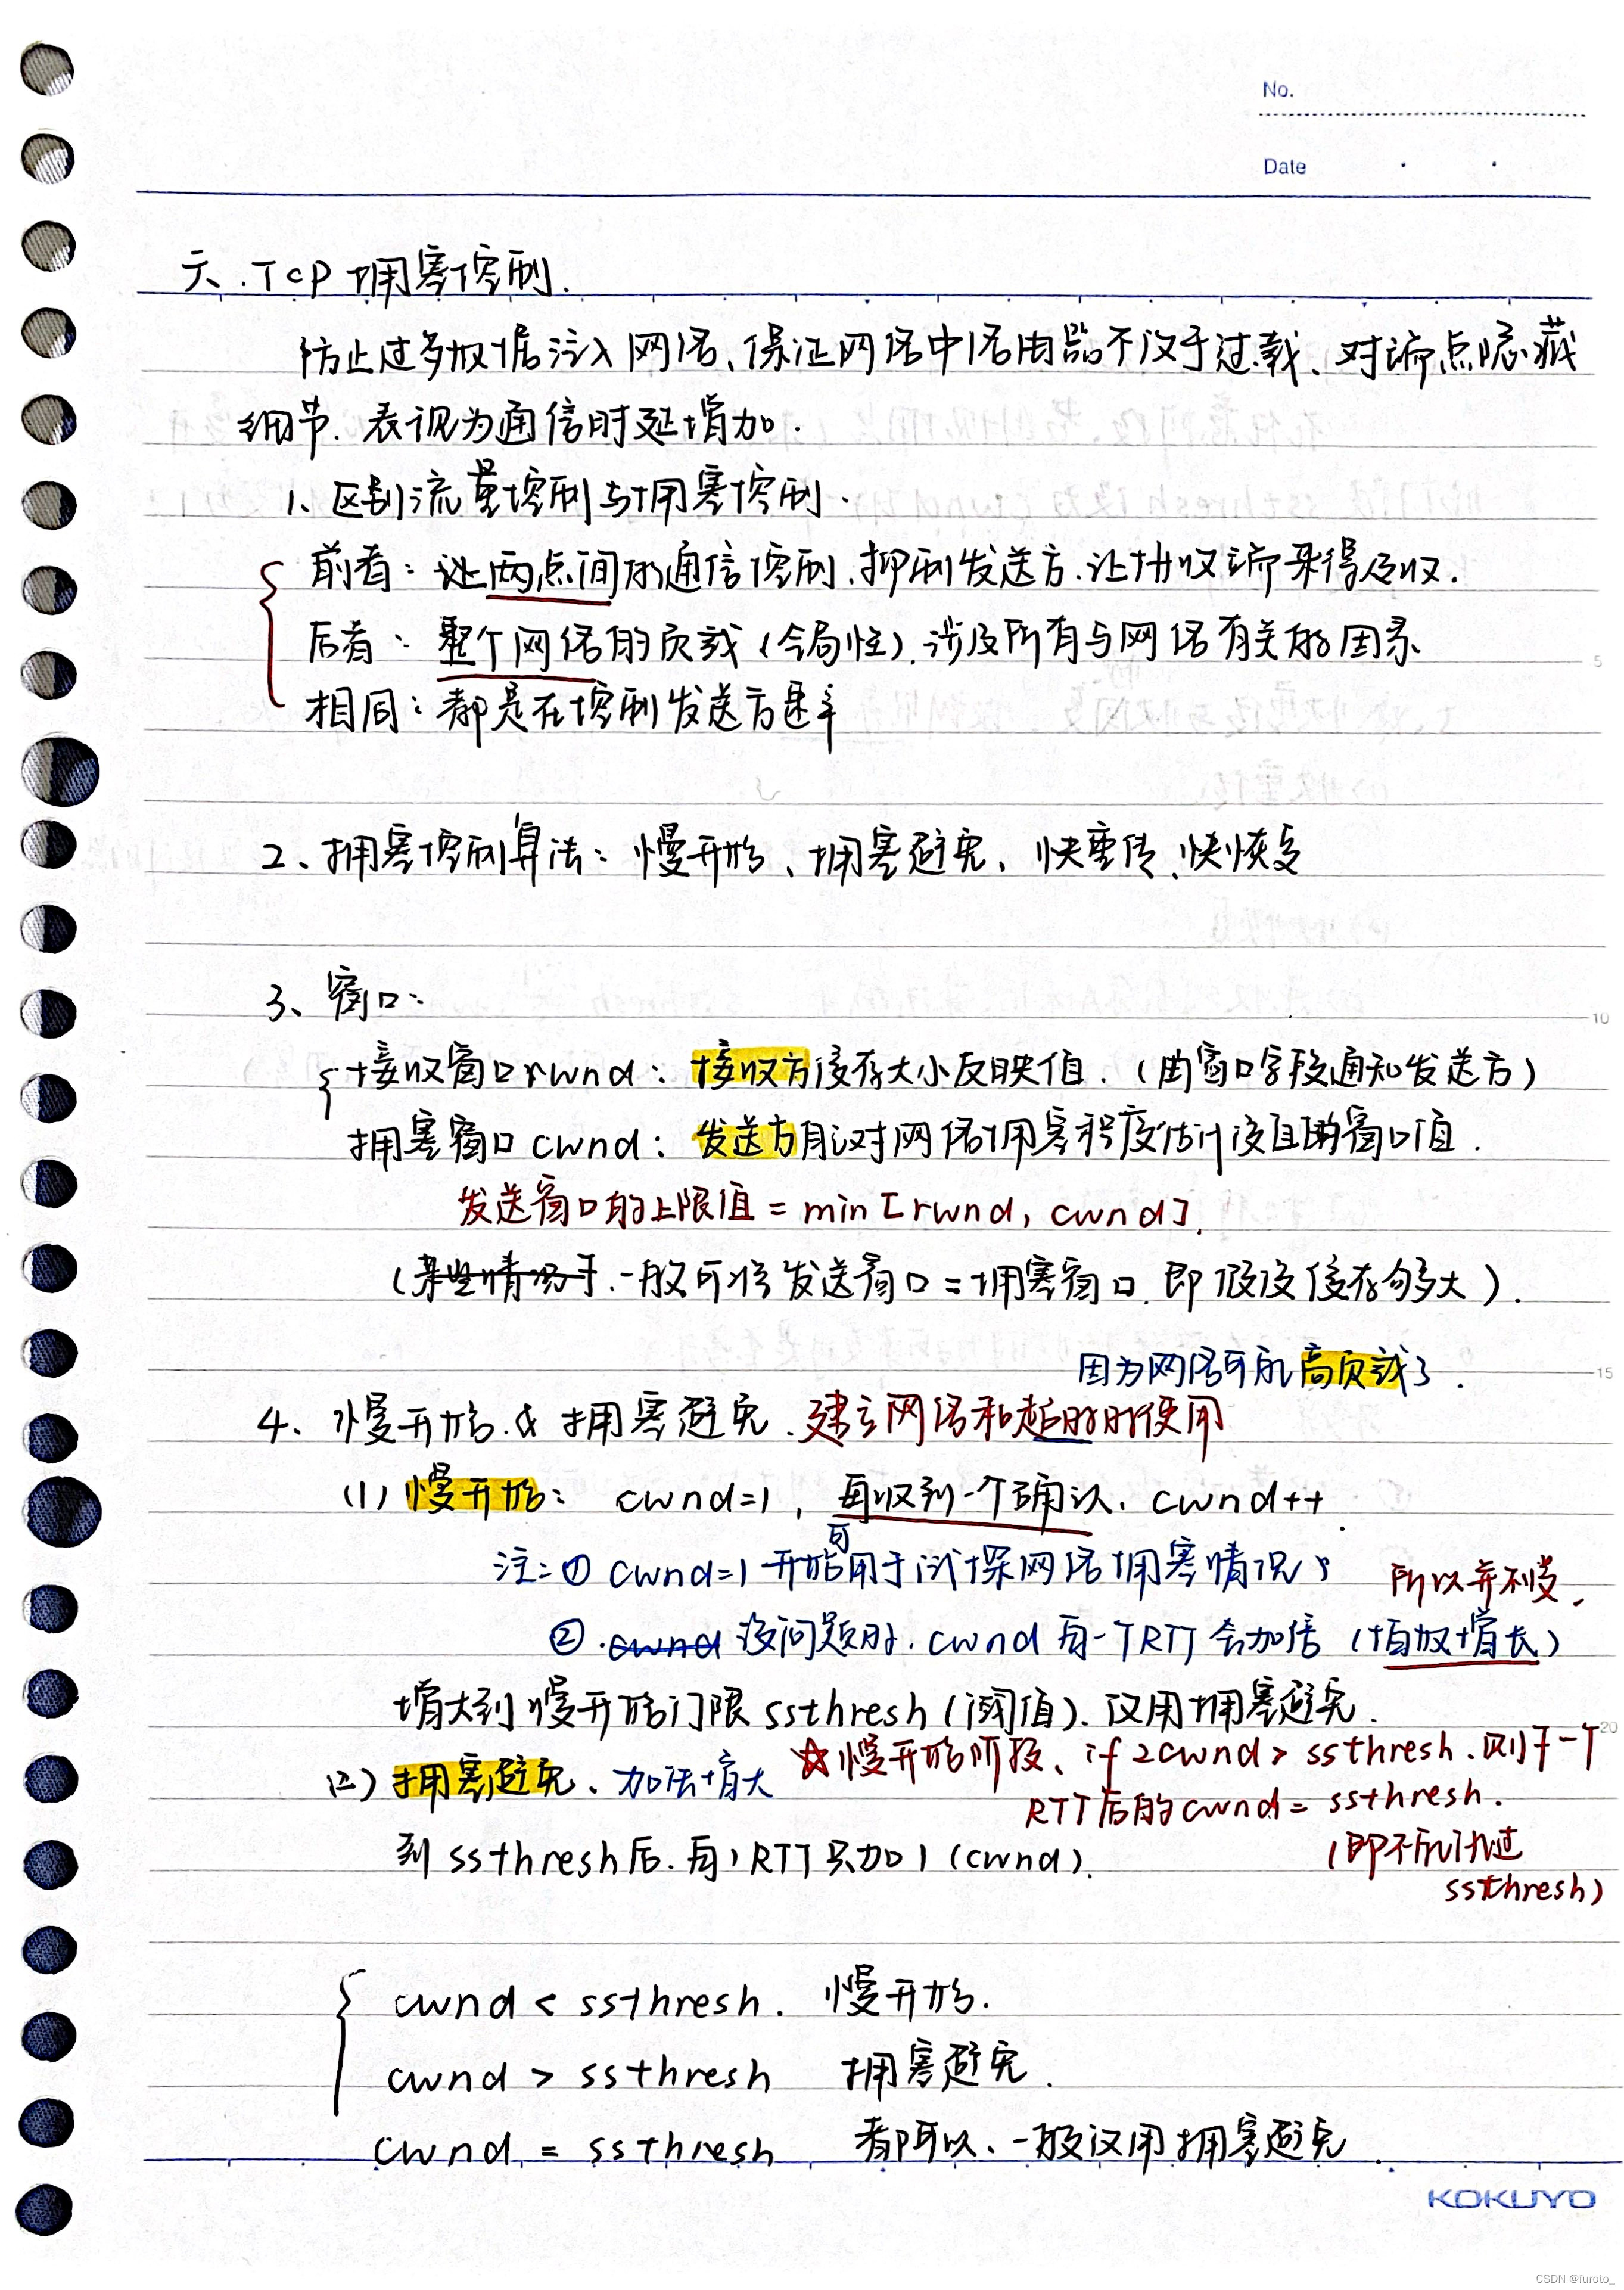 No.
Date
六.TCP拥塞控制.
防止过多数据注入网络、保证网络中路由器不致于过载、对端点隐藏
细节.表现为通信时延增加.
1、区别流量控制与拥塞控制.
前者:两点间的通信控制.抑制发送方.让接收端来得及收.
后者:整个网络的负载(全局性).涉及所有与网络有关的因素
相同:都是在控制发送方速率
2、拥塞控制算法:慢开始、拥塞避免、快重传、快恢复
3、窗口:
接收窗口rwnd:接收方缓存大小反映值.(由窗口字段通知发送方)
拥塞窗口cwnd:发送方自认对网络拥塞程度估计设置的窗口值.
发送窗口的上限值=min[rwnd, cwnd].
(某些情况下.一般可将发送窗口=拥塞窗口.即假设缓存够大).
因为网络可能高负载了.
4、慢开始.& 拥塞避免.建立网络和超时时使用
(1)慢开始: cwnd=1,每收到一个确认、cwnd++.
注:① cwnd=1开始可用于试探网络拥塞情况;
所以并不慢.
②.cwnd 没问题时.cwnd每一个RTT会加倍(指数增长)
增大到慢开始门限ssthresh(阈值).改用拥塞避免.
☆慢开始阶段、if 2cwnd > ssthresh.则下一个
(2)拥塞避免、加法增大
RTT后的cwnd= ssthresh.
到ssthresh后.每1RTT只加1(cwnd).
(即不能跃过
ssthresh)
cwnd < ssthresh. 慢开始.
cwnd > ssthresh 拥塞避免.
cwnd = ssthresh 都可以、一般改用拥塞避免.
5
10
15
20
KOKUYO
CSDN @furoto_